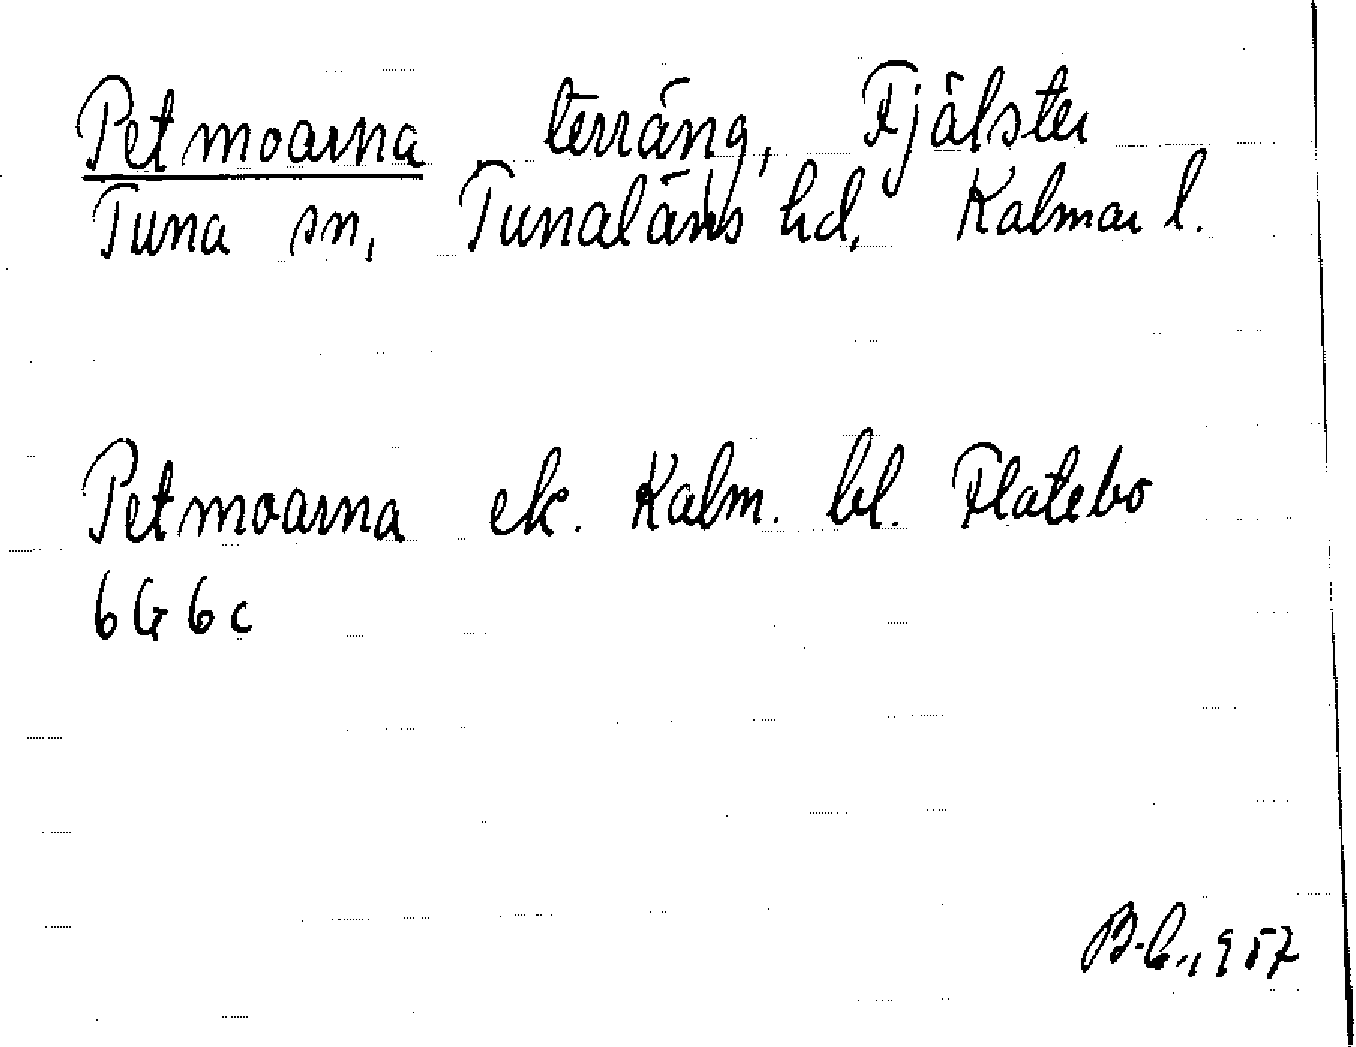 Petmoarna terräng, Fjälster
Tuna sn, Tunaläns hd, Kalmar l.
Petmoarna ek. Kalm. bl. Flatebo
6G6c
1957